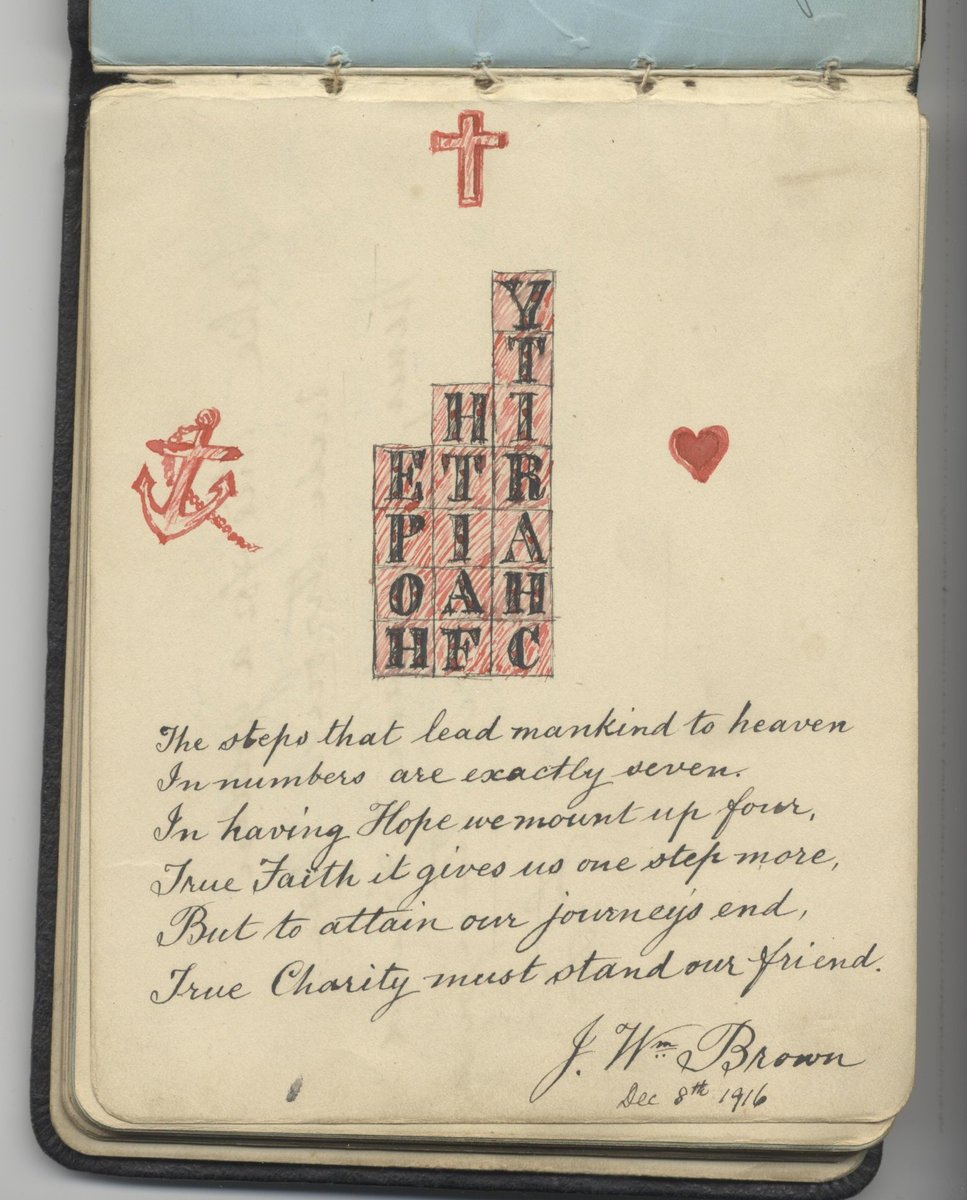 Y
T
H I
E T R
P I A
O A H
H F C
The steps that lead mankind to heaven
In numbers are exactly seven.
In having Hope we mount up four,
True Faith it gives us one step more,
But to attain our journey's end,
True Charity must stand our friend.
J. Wm Brown
Dec 8th 1916